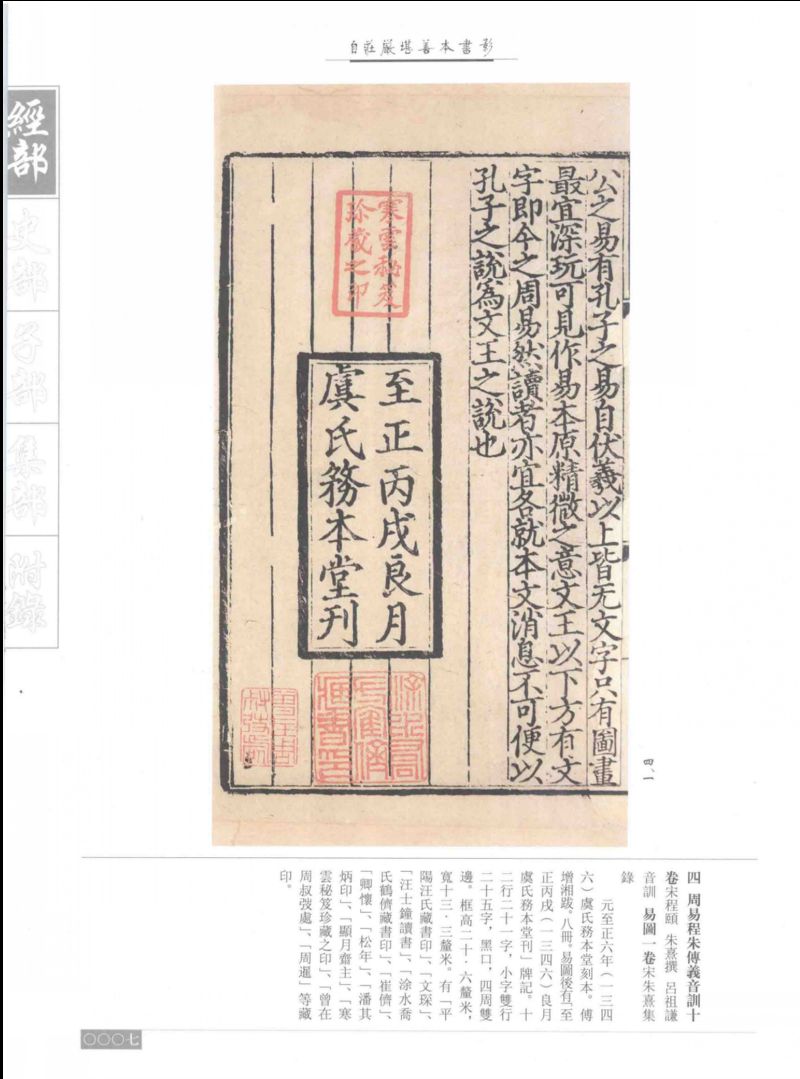 自莊嚴堪善本書影
經部
史部
子部
集部
附錄
公之易有孔子之易自伏羲以上皆无文字只有圖畫
最宜深玩可見作易本原精微之意文王以下方有文
字即今之周易然讀者亦宜各就本文消息不可便以
孔子之說為文王之說也
寒雲秘笈
珍藏之印
至正丙戌良月
虞氏務本堂刊
涂水喬
氏鶴儕
藏書印
曾在周
叔弢處
四、一
四　周易程朱傳義音訓十
卷宋程頤　朱熹撰　呂祖謙
音訓　易圖一卷宋朱熹集
錄
元至正六年（一三四
六）虞氏務本堂刻本。傅
增湘跋。八冊。易圖後有「至
正丙戌（一三四六）良月
虞氏務本堂刊」牌記。十
二行二十一字，小字雙行
二十五字，黑口，四周雙
邊。框高二十·六釐米，
寬十三·三釐米。有「平
陽汪氏藏書印」、「文琛」、
「汪士鐘讀書」、「涂水喬
氏鶴儕藏書印」、「崔儕」、
「卿懷」、「松年」、「潘其
炳印」、「顯月齋主」、「寒
雲秘笈珍藏之印」、「曾在
周叔弢處」、「周暹」等藏
印。
〇〇〇七